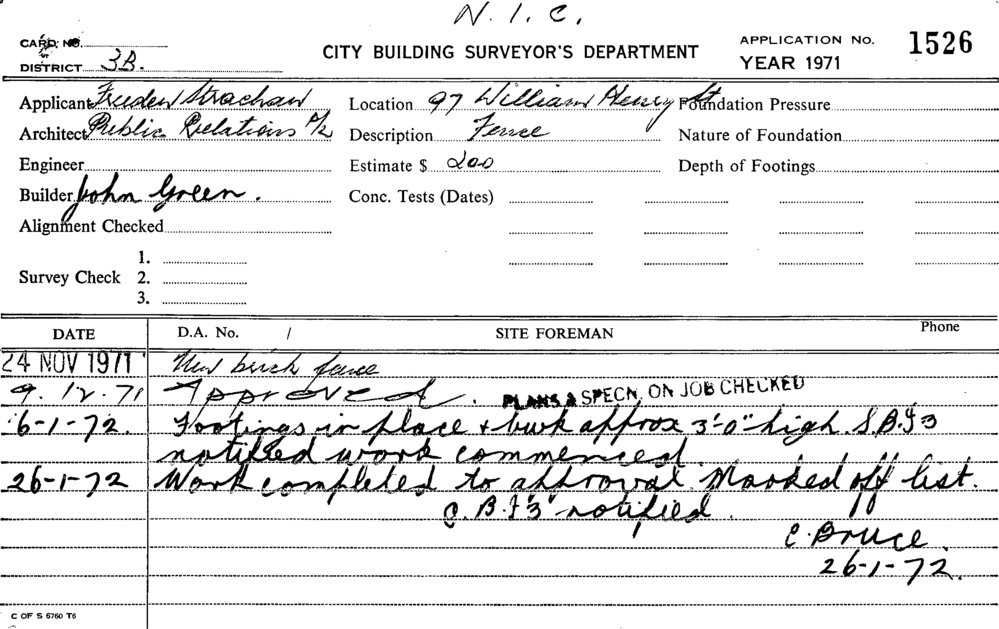 N. I. C.
CARD No.
DISTRICT 3B.
CITY BUILDING SURVEYOR'S DEPARTMENT
APPLICATION No. 1526
YEAR 1971
Applicant Frieden Strachan Location 97 William Henry St Foundation Pressure
Architect Public Relations P/L Description Fence Nature of Foundation
Engineer Estimate $ 200 Depth of Footings
Builder John Green. Conc. Tests (Dates)
Alignment Checked
1.
Survey Check 2.
3.
DATE D.A. No. / SITE FOREMAN Phone
24 NOV 1971 New brick fence
9. 12. 71 Approved. PLANS & SPECN. ON JOB CHECKED
6-1-72. Footings in place + bwk approx 3'-0" high. S.B.I 3
notified work commenced.
26-1-72 Work completed to approval. Marked off list.
B.I "3" notified.
E. Bruce.
26-1-72.
C OF S 6760 T6